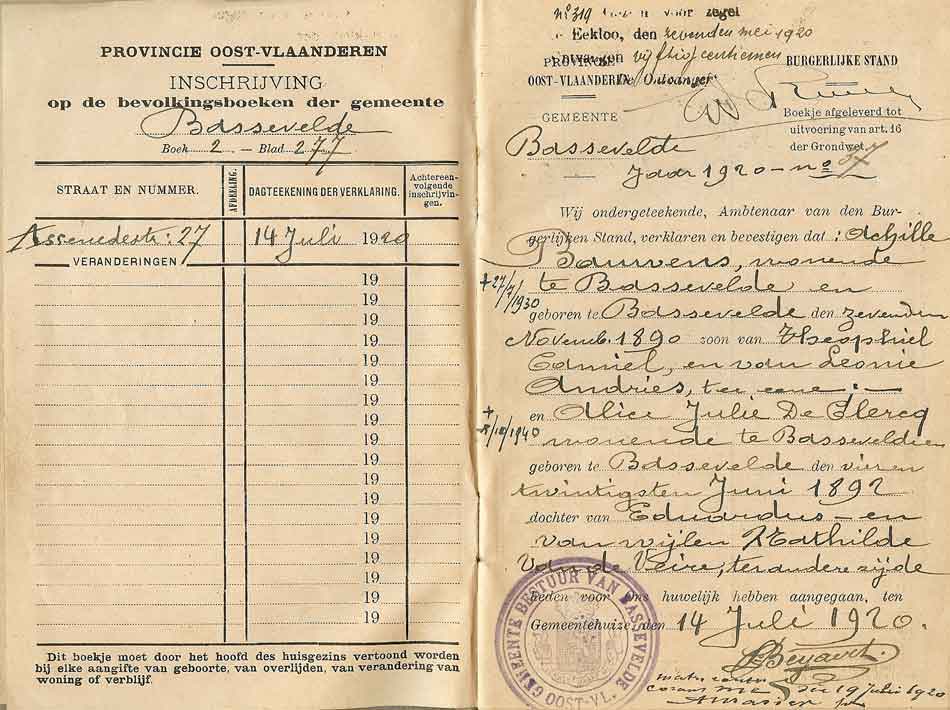 PROVINCIE OOST-VLAANDEREN
INSCHRIJVING
op de bevolkingsboeken der gemeente
Bassevelde
Boek 2 - Blad 277
STRAAT EN NUMMER.
AFDEELING.
DAGTEEKENING DER VERKLARING.
Achtereen-
volgende
inschrijvin-
gen.
Assenedestr: 27
14 Juli 1920
VERANDERINGEN
19
19
19
19
19
19
19
19
19
19
19
19
19
19
19
19
19
19
Dit boekje moet door het hoofd des huisgezins vertoond worden
bij elke aangifte van geboorte, van overlijden, van verandering van
woning of verblijf.
No 319 voor zegel
Eekloo, den zevenden mei 1920
vijftig centiemen
De Ontvanger
PROVINCIE
OOST-VLAANDEREN
GEMEENTE
Bassevelde
BURGERLIJKE STAND
Boekje afgeleverd tot
uitvoering van art. 16
der Grondwet.
Jaar 1920 - no
Wij ondergeteekende, Ambtenaar van den Bur-
gerlijken Stand, verklaren en bevestigen dat : Achille
Pauwens, wonende
te Bassevelde en
+ 27/7/1930
geboren te Bassevelde den zevenden
Novemb. 1890 zoon van Theophiel
Camiel, en van Leonie
Andries, ter eene :-
en Alice Julie De Clercq
+ 1940
wonende te Bassevelde en
geboren te Bassevelde den vier en
twintigsten Juni 1892
dochter van Eduardus - en
van wijlen Mathilde
Van de Veire, ter andere zijde
heden voor ons huwelijk hebben aangegaan, ten
Gemeentehuize, den 14 Juli 1920.
GEMEENTE BESTUUR VAN BASSEVELDE
OOST-VL.
coram me die 19 Julii 1920